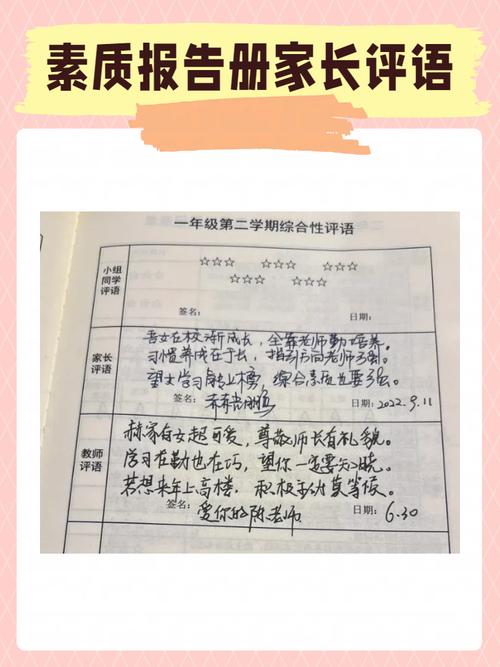 素质报告册家长评语
一年级第二学期综合性评语
小组同学评语
☆☆☆ ☆☆☆ ☆☆☆
☆☆☆ ☆☆☆
签名: 日期:
家长评语
吾女在校渐成长,全靠老师勤培养。
习惯养成在于长,指引方向老师强。
望女学习能上榜,综合素质也要强。
签名: 日期: 2022.9.11
教师评语
赫家有女超可爱,尊敬师长有礼貌。
学习在勤也在巧,望你一定要知晓。
若想来年上高楼,积极主动莫等候。
签名: 爱你的陈老师 日期: 6.30